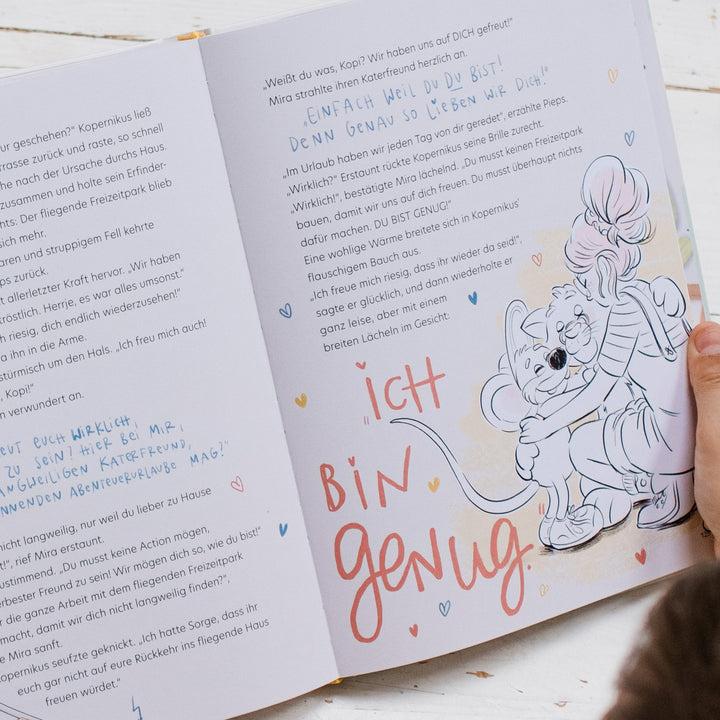 ur geschehen?" Kopernikus ließ
rasse zurück und raste, so schnell
he nach der Ursache durchs Haus.
zusammen und holte sein Erfinder-
hts: Der fliegende Freizeitpark blieb
sich mehr.
aren und struppigem Fell kehrte
ps zurück.
t allerletzter Kraft hervor. „Wir haben
tröstlich. Herrje, es war alles umsonst."
h riesig, dich endlich wiederzusehen!"
a ihn in die Arme.
stürmisch um den Hals. „Ich freu mich auch!
, Kopi!"
n verwundert an.
EUT EUCH WIRKLICH,
ZU SEIN? HIER BEI MIR,
ANGWEILIGEN KATERFREUND,
NNENDEN ABENTEUERURLAUBE MAG?"
nicht langweilig, nur weil du lieber zu Hause
t!", rief Mira erstaunt.
ustimmend. „Du musst keine Action mögen,
erbester Freund zu sein! Wir mögen dich so, wie du bist!"
r die ganze Arbeit mit dem fliegenden Freizeitpark
macht, damit wir dich nicht langweilig finden?",
e Mira sanft.
Kopernikus seufzte geknickt. „Ich hatte Sorge, dass ihr
euch gar nicht auf eure Rückkehr ins fliegende Haus
freuen würdet."
„Weißt du was, Kopi? Wir haben uns auf DICH gefreut!"
Mira strahlte ihren Katerfreund herzlich an.
„EINFACH WEIL DU DU BIST!
DENN GENAU SO LIEBEN WIR DICH!"
„Im Urlaub haben wir jeden Tag von dir geredet", erzählte Pieps.
„Wirklich?" Erstaunt rückte Kopernikus seine Brille zurecht.
„Wirklich!", bestätigte Mira lächelnd. „Du musst keinen Freizeitpark
bauen, damit wir uns auf dich freuen. Du musst überhaupt nichts
dafür machen. DU BIST GENUG!"
Eine wohlige Wärme breitete sich in Kopernikus'
flauschigem Bauch aus.
„Ich freue mich riesig, dass ihr wieder da seid!",
sagte er glücklich, und dann wiederholte er
ganz leise, aber mit einem
breiten Lächeln im Gesicht:
„ich
BiN
genug."